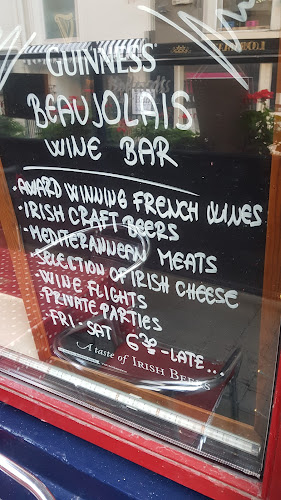 GUINNESS
BEAUJOLAIS
WINE BAR
·AWARD WINNING FRENCH WINES
·IRISH CRAFT BEERS
·MEDITERANNEAN MEATS
·SELECTION OF IRISH CHEESE
·WINE FLIGHTS
·PRIVATE PARTIES
·FRI - SAT 6:30 - LATE...
A taste of IRISH BEERS